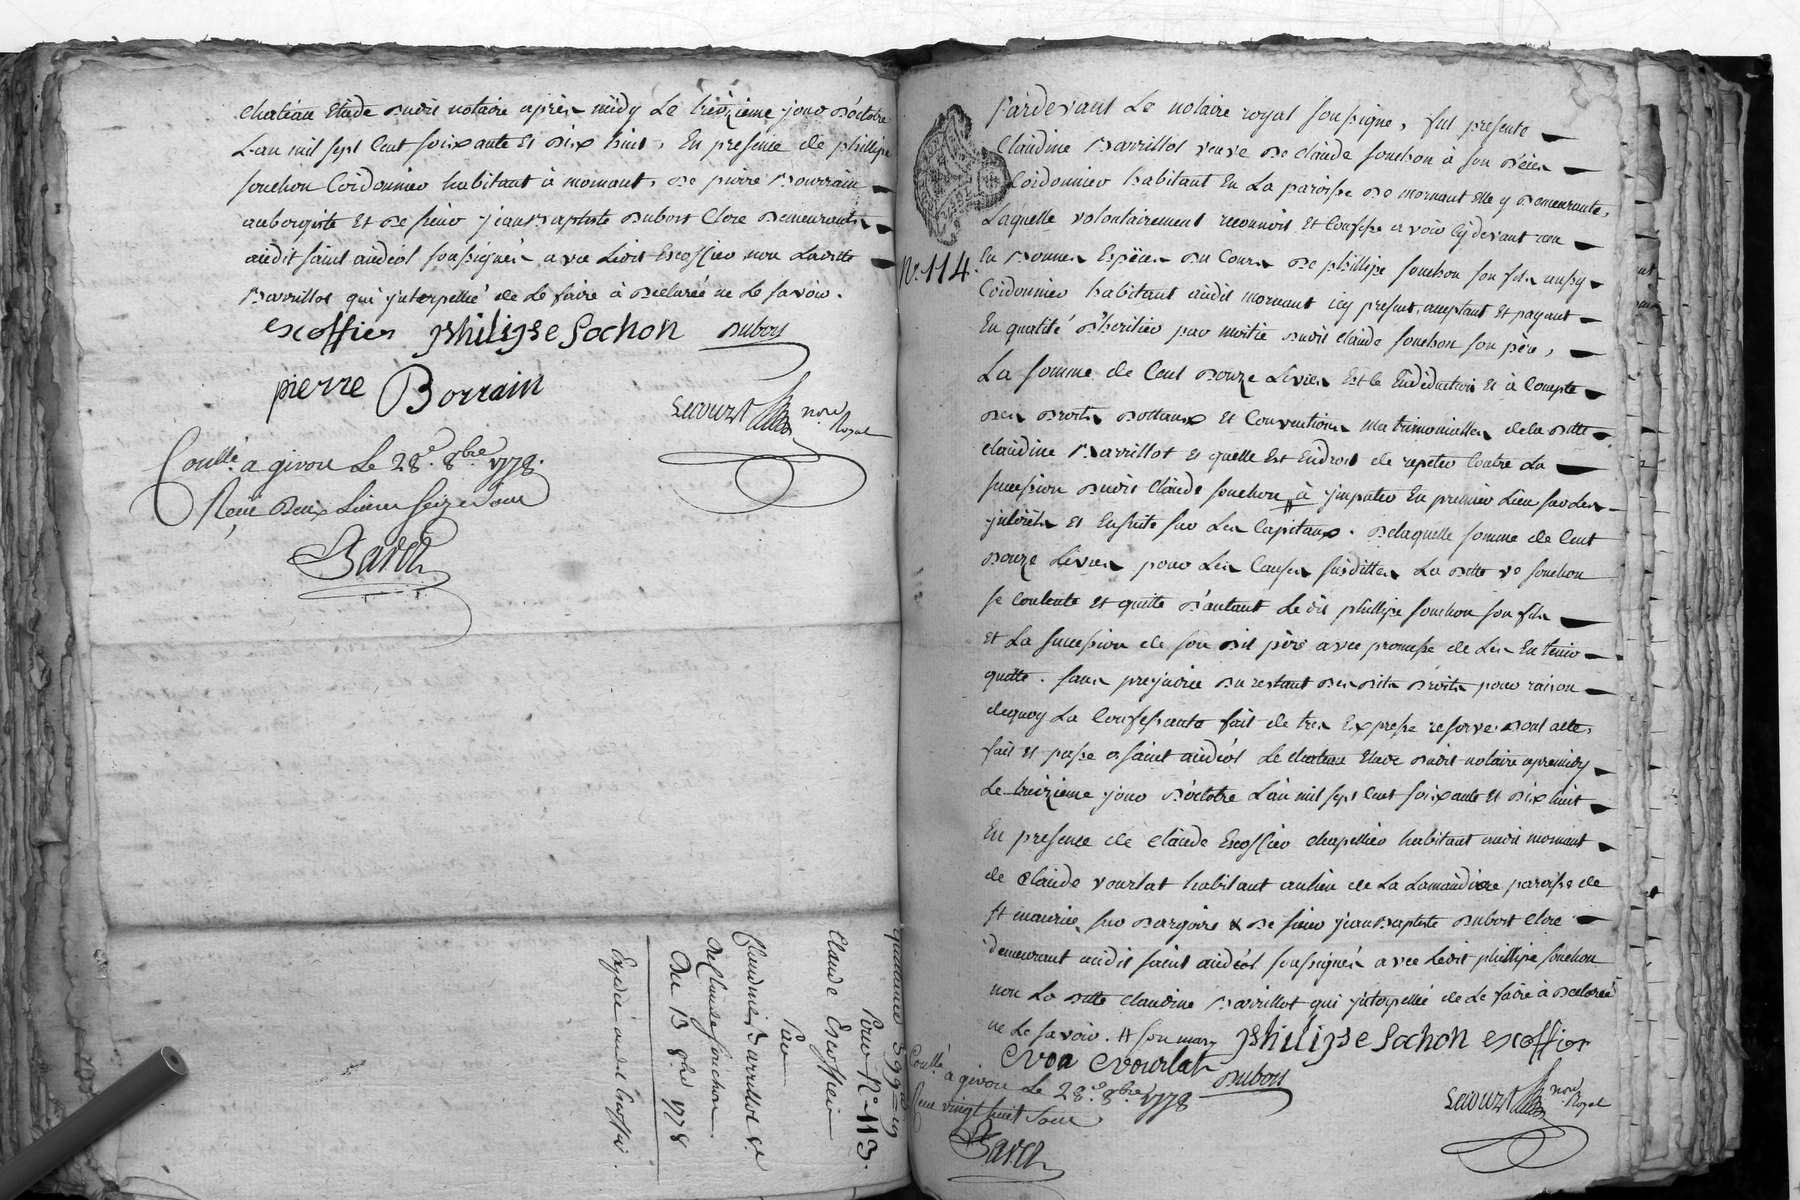 chateau Etude dudit notaire après midy Le treizieme jour d'octobre
L'an mil sept Cent soixante Et dix huit, En presence de phillipe
souchon Cordonnier habitant à mornant, de pierre Bourrain
aubergiste Et de sieur jean baptiste dubost Clerc demeurants
audit saint andéol soussignés avec Ledit Escoffier non Laditte
Barrillot qui jnterpellée de Le faire à declarée ne Le savoir.
escoffier philippe Sochon dubost
pierre Borrain
Secourgt nore Royal
Conllé a givor Le 28e 8bre 1778.
Reçu deux Livres seize sous
quittance
Pour N° 113.
Claude Escoffier
Par
Claudine Barrillot ve
de Claude souchon
Du 13 8bre 1778
Expedié audit Escoffier.
Pardevant Le notaire royal soussigné, fut presente
Claudine Barrillot veuve de claude souchon à son deces
Cordonnier habitant En La paroisse de mornant Elle y demeurante,
Laquelle volontairement reconnoit Et Confesse avoir cy devant reçu
N° 114.
En bonnes Espèces du Cours de phillipe souchon son fils aussy
Cordonnier habitant audit mornant icy present, acceptant Et payant
En qualité d'heritier par moitié dudit claude souchon son père,
La somme de Cent douze Livres Et ce En déduction Et à Compte
des droits dottaux Et Conventions matrimonialles de la ditte
claudine Barrillot Et quelle Est En droit de repeter Contre La
succession dudit Claude souchon # à jmputer En premier Lieu sur Les
jnterets Et Ensuite sur Les Capitaux. de laquelle somme de Cent
douze Livres pour Les Causes susdittes La ditte ve souchon
se Contente Et quitte d'autant Le dit phillipe souchon son fils
Et La succession de son dit père avec promesse de Les En tenir
quitte. sans prejudice du restant des dits droits pour raison
dequoy La Confessante fait de tres Expresse reserve, dont acte,
fait Et passé à saint andéol Le chateau Etude dudit notaire apresmidy
Le treizieme jour d'octobre L'an mil sept Cent soixante Et dix huit
En presence de Claude Escoffier chapellier habitant audit mornant
de Claude vourlat habitant au lieu de La Lamandiere paroisse de
st maurice sur dargoire & de sieur jean baptiste dubost Clerc
demeurant audit saint andéol soussignés avec Ledit phillipe souchon
non La ditte claudine Barrillot qui jnterpellée de Le faire à declarée
ne Le savoir. # son mary philippe Sochon escoffier
vourlat dubost
Conllé a givor Le 28e 8bre 1778
Reçu vingt huit sous
Secourgt nore Royal